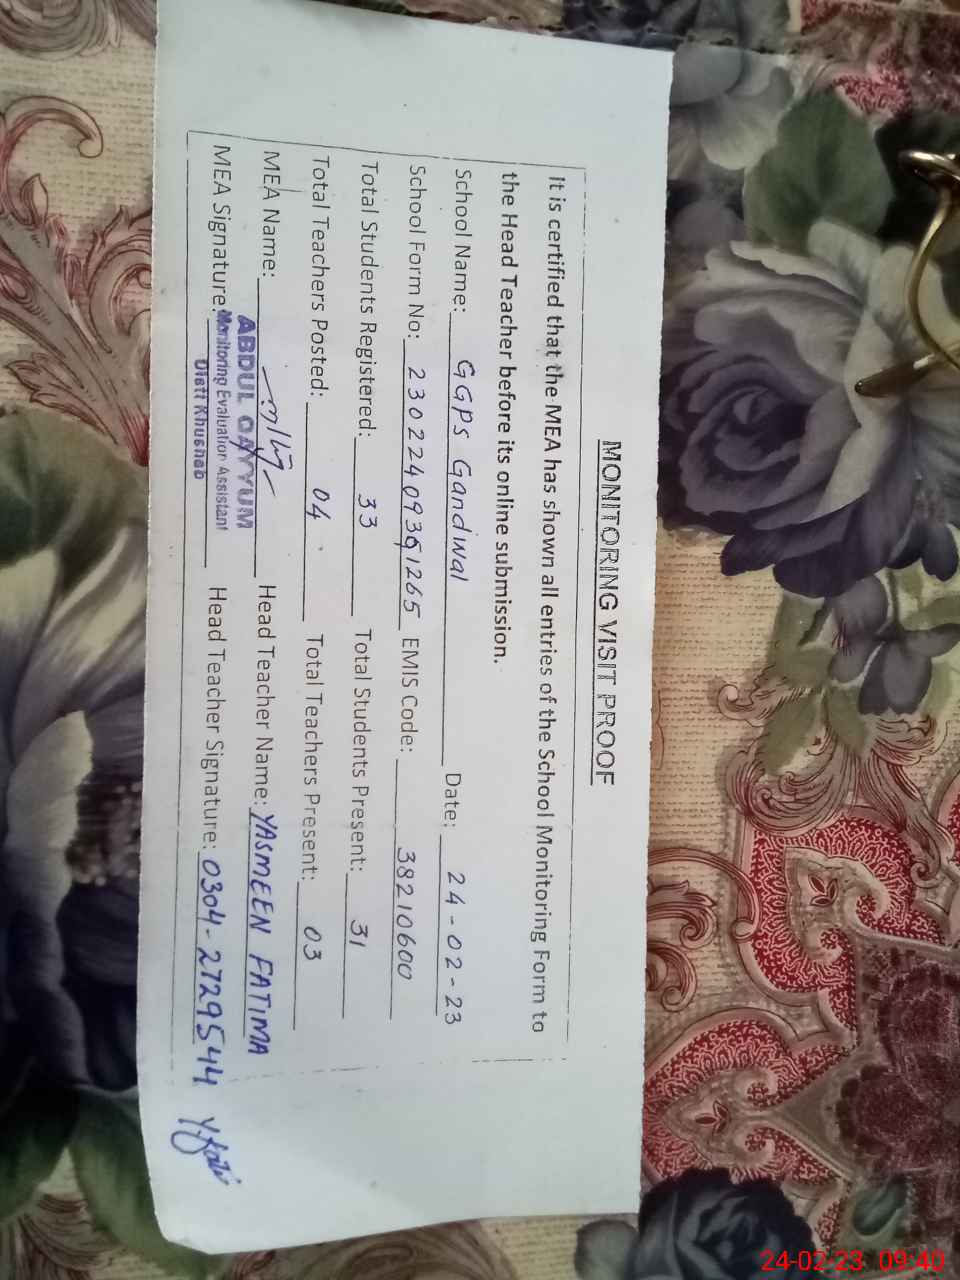 MONITORING VISIT PROOF
It is certified that the MEA has shown all entries of the School Monitoring Form to
the Head Teacher before its online submission.
School Name: GGPS Gandwal Date: 24-02-23
School Form No: EMIS Code: 38210600
Total Students Registered: 33 Total Students Present: 31
Total Teachers Posted: 04 Total Teachers Present: 03
MEA Name: ABDUL QAYYUM Head Teacher Name: YASMEEN FATIMA
MEA Signature: Monitoring Evaluation Assistant Head Teacher Signature: 0304-2729544
Distt Khushab
24-02-23 09:40